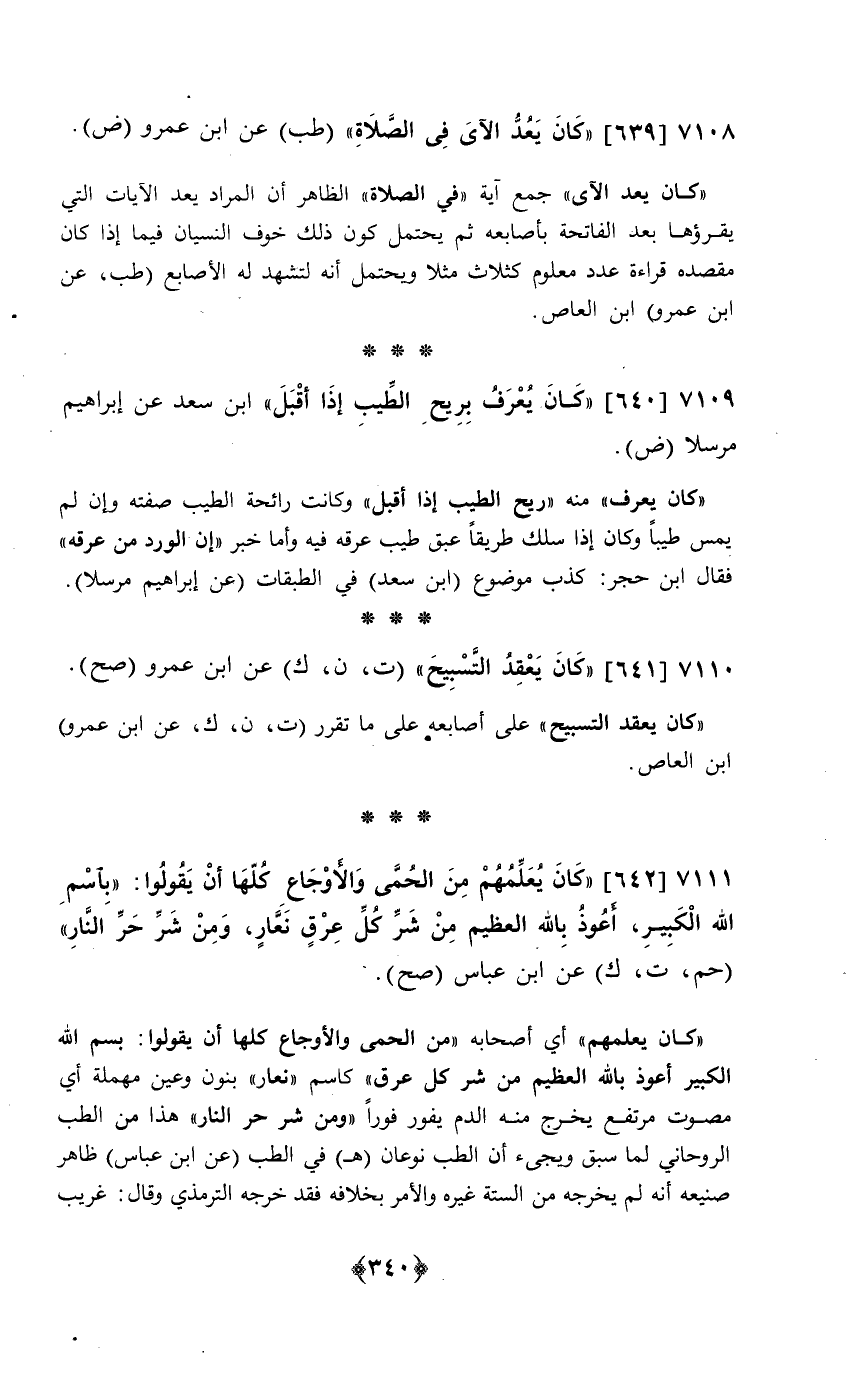 ٧١٠٨ [٦٣٩] «كَانَ يَعُدُّ الآىَ فِى الصَّلَاةِ» (طب) عن ابن عمرو (ض).
«كـان يعد الآى» جمع آية «في الصلاة» الظاهر أن المراد يعد الآيات التي
يقـرؤهـا بعد الفاتحة بأصابعه ثم يحتمل كون ذلك خوف النسيان فيما إذا كان
مقصده قراءة عدد معلوم كثلاث مثلا ويحتمل أنه لتشهد له الأصابع (طب، عن
ابن عمرو) ابن العاص.
* * *
٧١٠٩ [٦٤٠] «كَـانَ يُعْرَفُ بِرِيحِ الطِّيبِ إِذَا أَقْبَلَ» ابن سعد عن إبراهيم
مرسلا (ض).
«كان يعرف» منه «ريح الطيب إذا أقبل» وكانت رائحة الطيب صفته وإن لم
يمس طيباً وكان إذا سلك طريقاً عبق طيب عرقه فيه وأما خبر «إن الورد من عرقه»
فقال ابن حجر: كذب موضوع (ابن سعد) في الطبقات (عن إبراهيم مرسلا).
* * *
٧١١٠ [٦٤١] «كَانَ يَعْقِدُ التَّسْبِيحَ» (ت، ن، ك) عن ابن عمرو (صح).
«كان يعقد التسبيح» على أصابعه على ما تقرر (ت، ن، ك، عن ابن عمرو)
ابن العاص.
* * *
٧١١١ [٦٤٢] «كَانَ يُعَلِّمُهُمْ مِنَ الحُمَّى وَالأَوْجَاعِ كُلِّهَا أنْ يَقُولُوا: «بِٱسْمِ
الله الْكَبِيـرِ، أَعُوذُ بِالله العظيم مِنْ شَرِّ كُلِّ عِرْقٍ نَعَّارٍ، وَمِنْ شَرِّ حَرِّ النَّارِ»
(حم، ت، ك) عن ابن عباس (صح).
«كـان يعلمهم» أي أصحابه «من الحمى والأوجاع كلها أن يقولوا: بسم الله
الكبير أعوذ بالله العظيم من شر كل عرق» كاسم «نعار» بنون وعين مهملة أي
مصـوت مرتفـع يخـرج منـه الدم يفور فوراً «ومن شر حر النار» هذا من الطب
الروحاني لما سبق ويجىء أن الطب نوعان (هـ) في الطب (عن ابن عباس) ظاهر
صنيعه أنه لم يخرجه من الستة غيره والأمر بخلافه فقد خرجه الترمذي وقال: غريب
﴿٣٤٠﴾